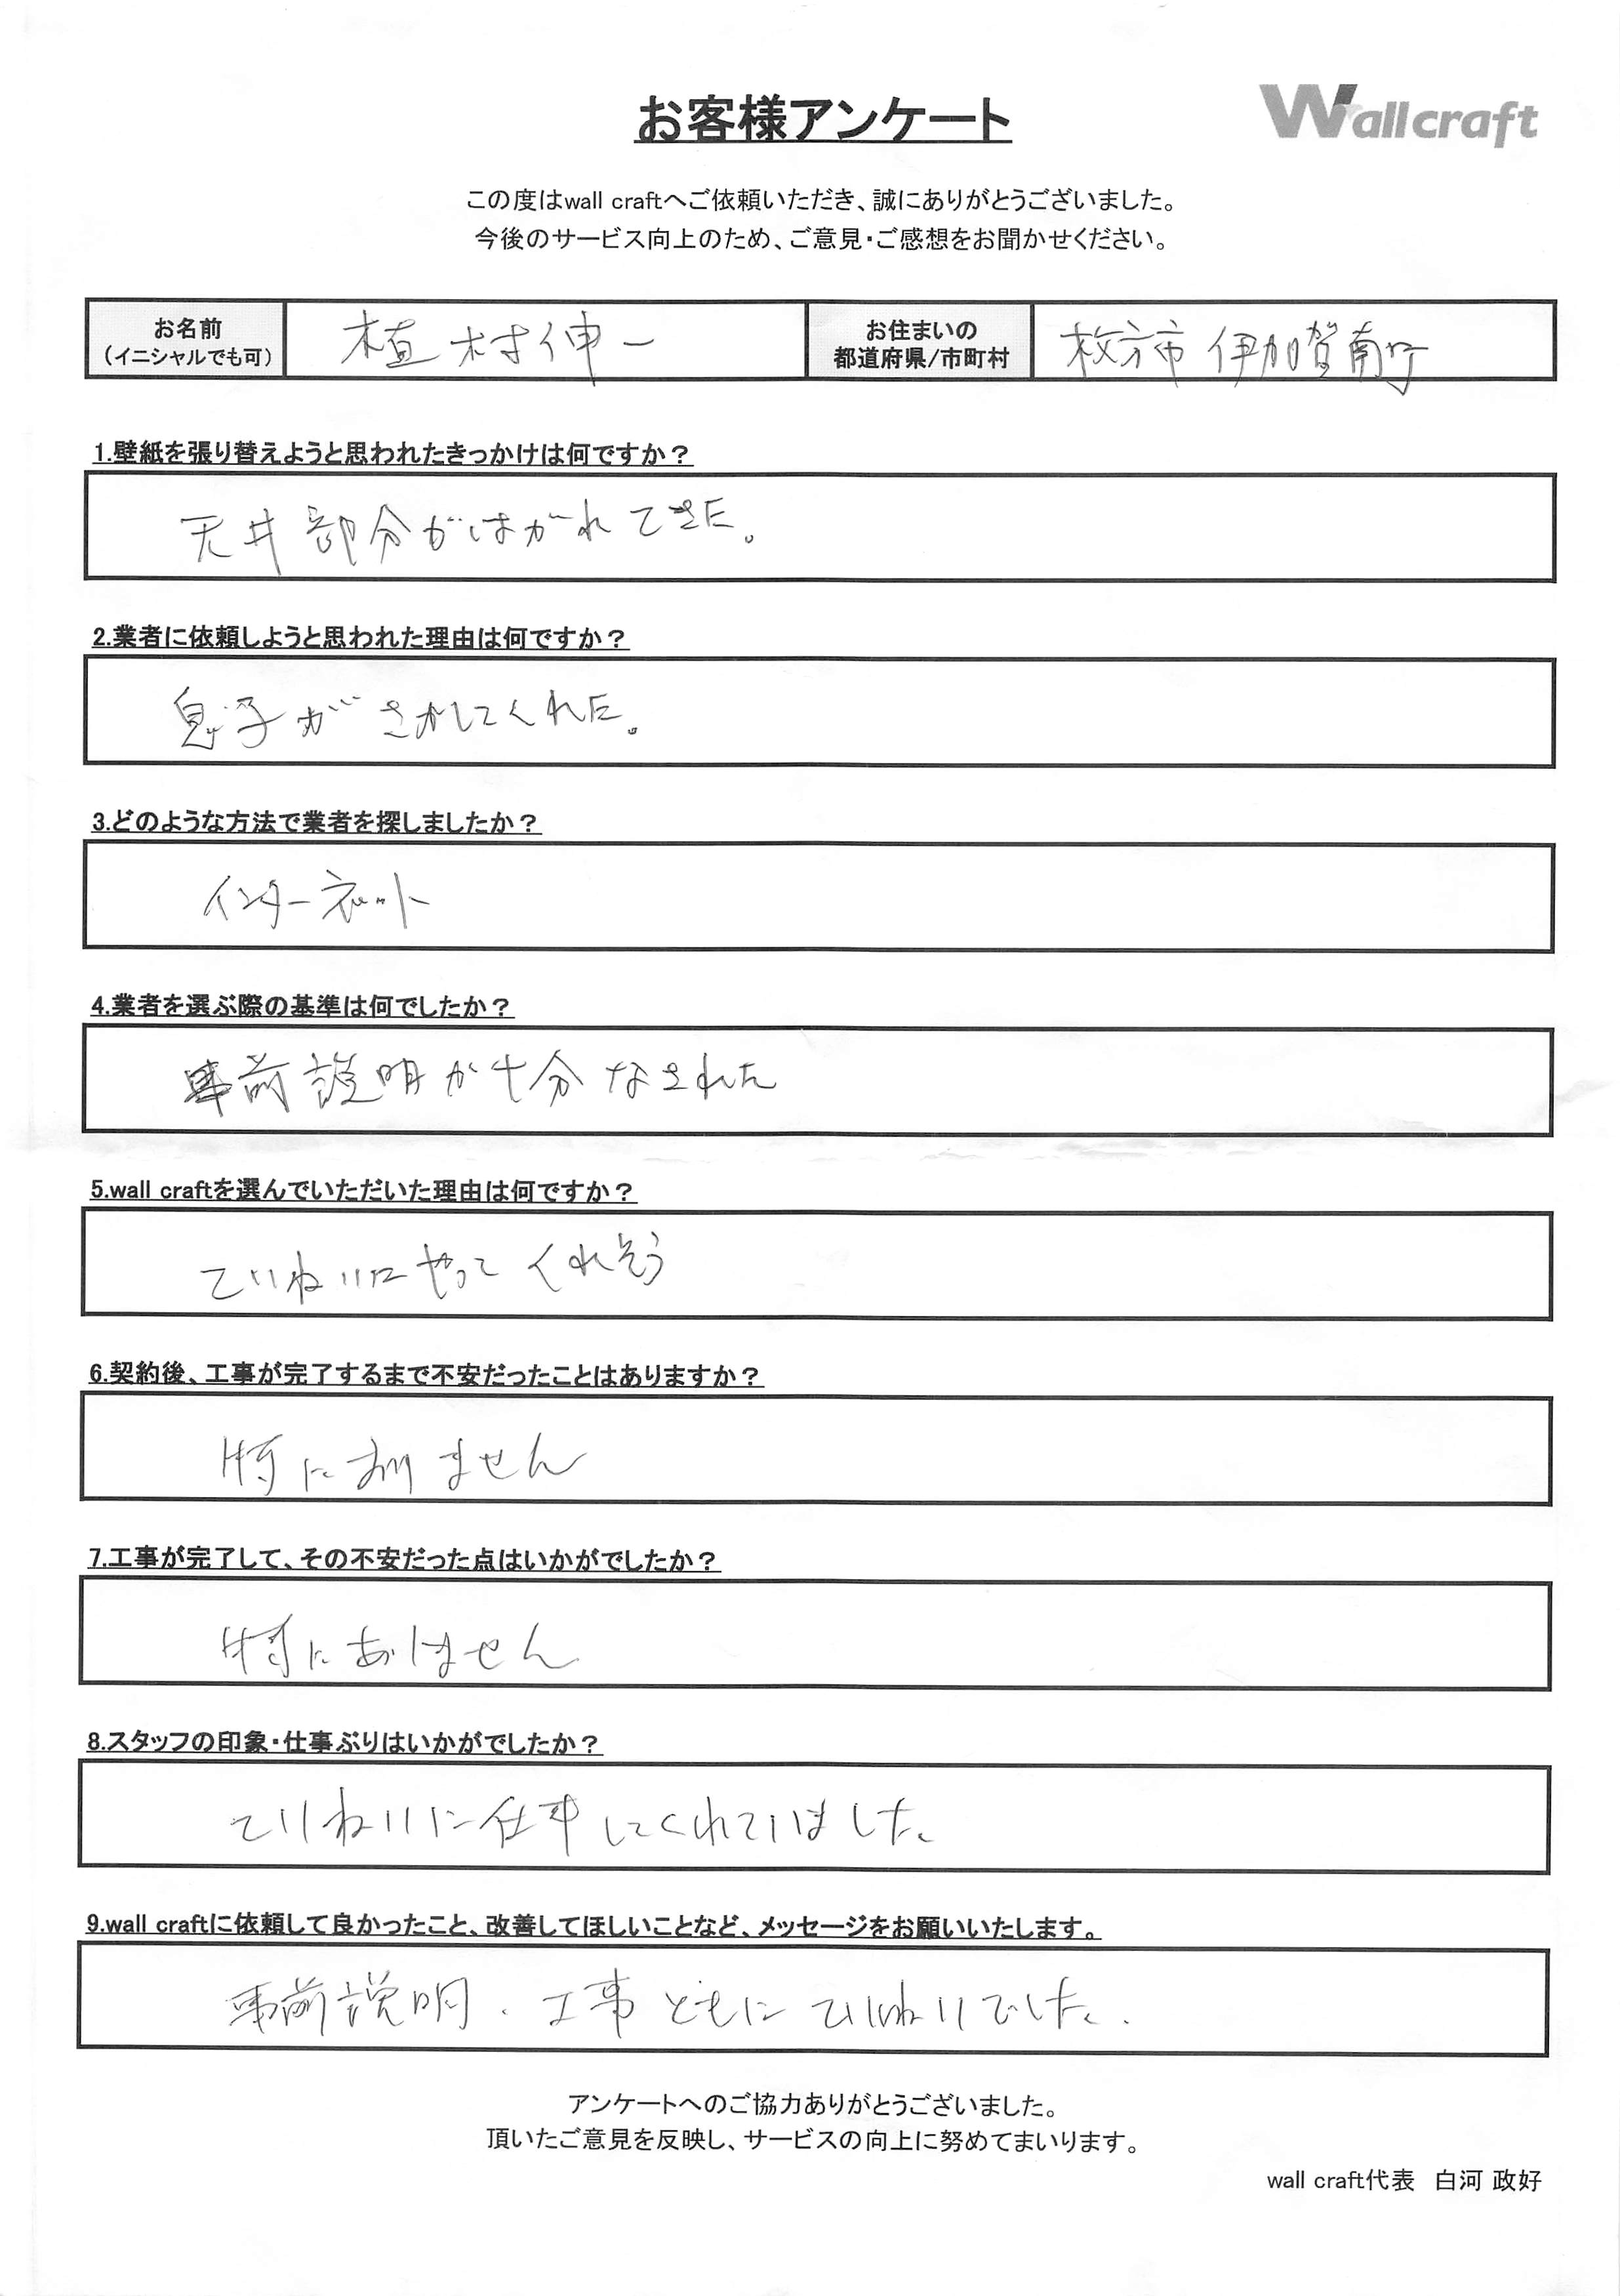 お客様アンケート
Wallcraft
この度はwall craftへご依頼いただき、誠にありがとうございました。
今後のサービス向上のため、ご意見・ご感想をお聞かせください。
お名前
（イニシャルでも可）
植村伸一
お住まいの
都道府県/市町村
枚方市 伊加賀南町
1.壁紙を張り替えようと思われたきっかけは何ですか？
天井部分がはがれてきた。
2.業者に依頼しようと思われた理由は何ですか？
息子がさがしてくれた。
3.どのような方法で業者を探しましたか？
インターネット
4.業者を選ぶ際の基準は何でしたか？
事前説明が十分なされた
5.wall craftを選んでいただいた理由は何ですか？
ていねいにやってくれそう
6.契約後、工事が完了するまで不安だったことはありますか？
特にありません
7.工事が完了して、その不安だった点はいかがでしたか？
特にありません
8.スタッフの印象・仕事ぶりはいかがでしたか？
ていねいに仕事してくれていました。
9.wall craftに依頼して良かったこと、改善してほしいことなど、メッセージをお願いいたします。
事前説明、工事ともにていねいでした。
アンケートへのご協力ありがとうございました。
頂いたご意見を反映し、サービスの向上に努めてまいります。
wall craft代表 白河 政好